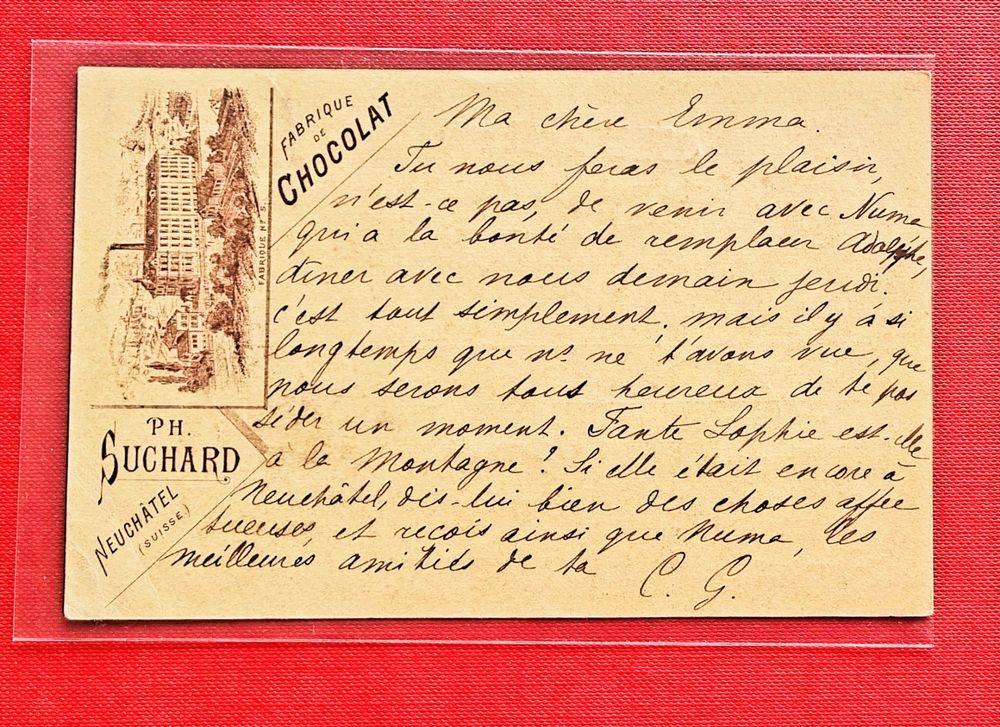 FABRIQUE
DE
CHOCOLAT
FABRIQUE Nº 5.
PH.
SUCHARD
NEUCHÂTEL
(SUISSE.)
Ma chère Emma.
Tu nous feras le plaisir,
n'est-ce pas, de venir avec Numa
qui a la bonté de remplacer Adolphe,
dîner avec nous demain jeudi.
c'est tout simplement, mais il y a si
longtemps que ns. ne t'avons vue, que
nous serons tous heureux de te pos
séder un moment. Tante Sophie est-elle
à la Montagne? Si elle était encore à
Neuchâtel, dis-lui bien des choses affec
tueuses, et reçois ainsi que Numa, les
meilleures amitiés de ta C. G.